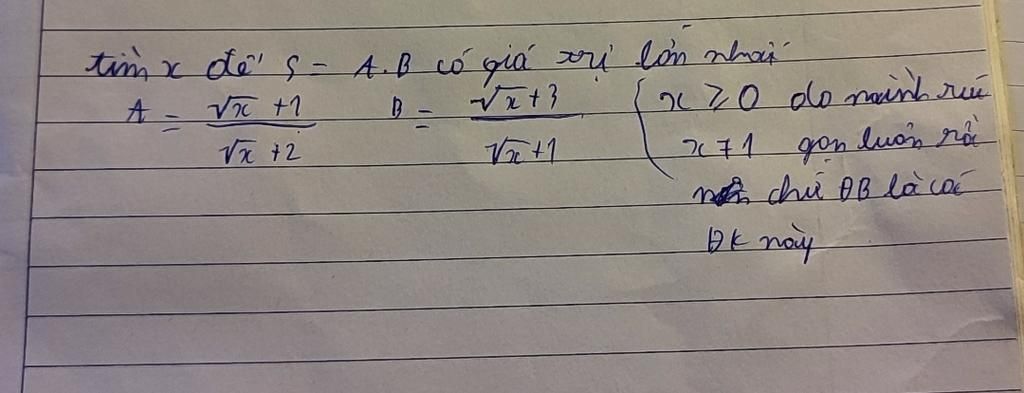 tìm x để S = A.B có giá trị lớn nhất
A = √x +1 / √x +2 B = √x +3 / √x +1 { x ≥ 0 do mình rút
x ≠ 1 gọn luôn rồi
chứ ĐB là có
ĐK này